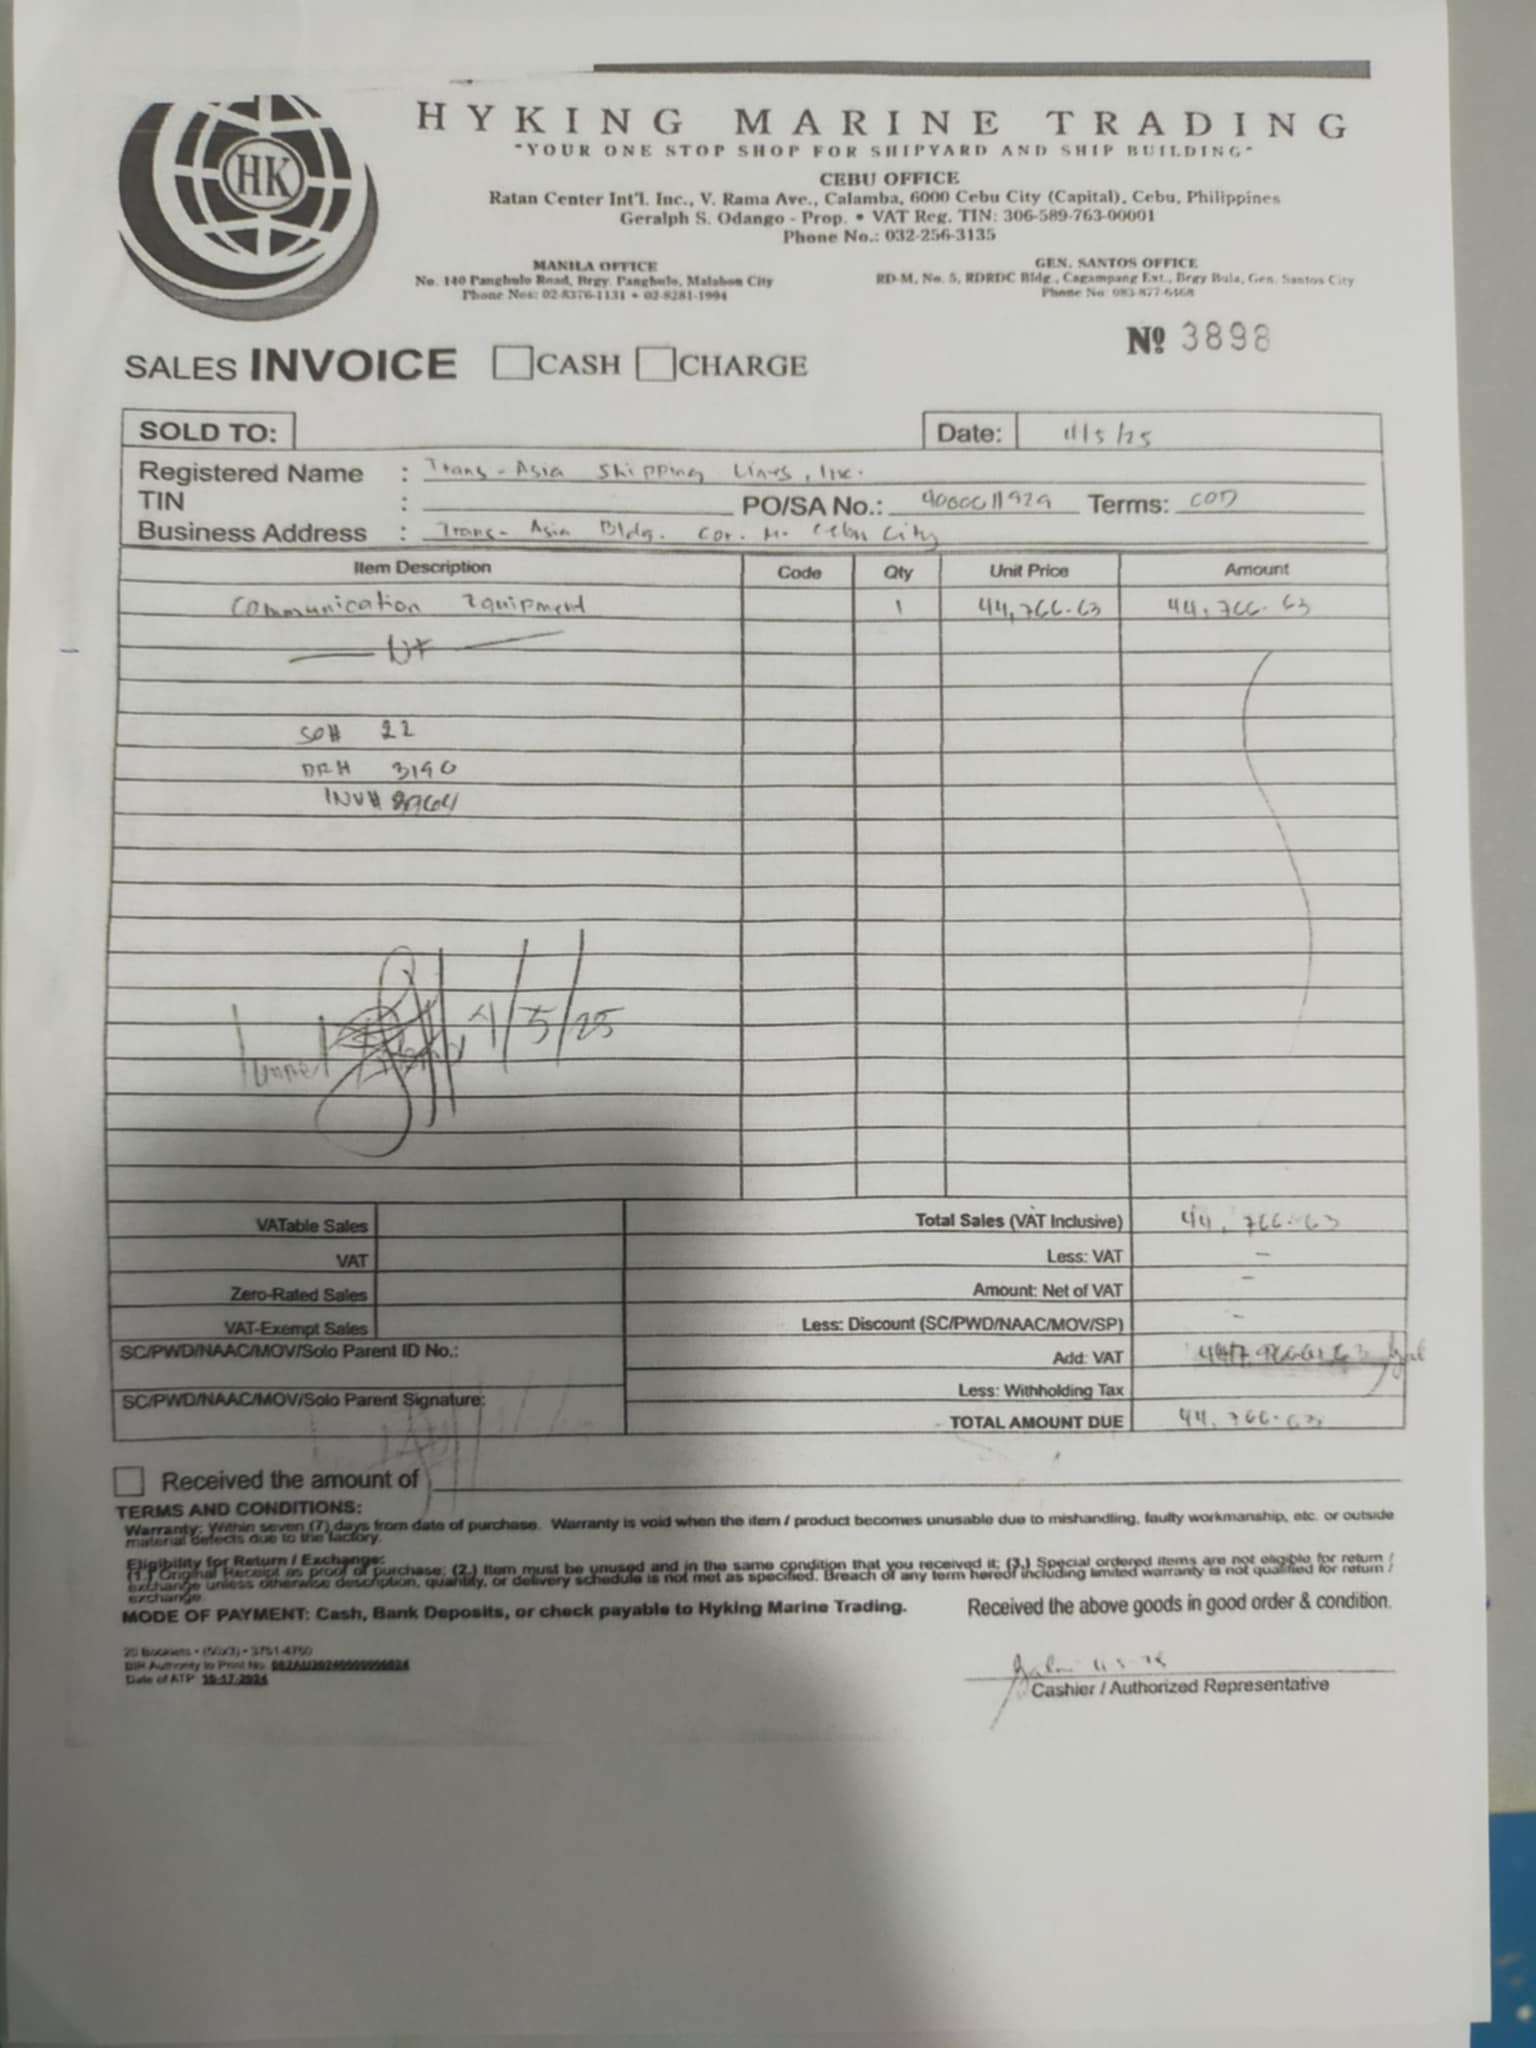 HK
HYKING MARINE TRADING
"YOUR ONE STOP SHOP FOR SHIPYARD AND SHIP BUILDING"
CEBU OFFICE
Ratan Center Int'l. Inc., V. Rama Ave., Calamba, 6000 Cebu City (Capital), Cebu, Philippines
Geralph S. Odango - Prop. • VAT Reg. TIN: 306-589-763-00001
Phone No.: 032-256-3135
MANILA OFFICE
No. 140 Panghulo Road, Brgy. Panghulo, Malabon City
Phone Nos: 02-8376-1131 • 02-8281-1994
GEN. SANTOS OFFICE
RD-M, No. 5, RDRDC Bldg., Cagampang Ext., Brgy Bula, Gen. Santos City
Phone No: 083-877-6468
Nº 3898
SALES INVOICE CASH CHARGE
SOLD TO: Date: 11/5/25
Registered Name : Trans-Asia Shipping Lines, Inc.
TIN : PO/SA No.: Terms: COD
Business Address : Trans-Asia Bldg. Cor. M. Cebu City
Item Description Code Qty Unit Price Amount
Communication Equipment 1 44,766.63 44,766.63
SO# 22
DR# 3190
INV#
/5/25
VATable Sales
VAT
Zero-Rated Sales
VAT-Exempt Sales
SC/PWD/NAAC/MOV/Solo Parent ID No.:
SC/PWD/NAAC/MOV/Solo Parent Signature:
Total Sales (VAT Inclusive) 44,766.63
Less: VAT -
Amount: Net of VAT -
Less: Discount (SC/PWD/NAAC/MOV/SP) -
Add: VAT
Less: Withholding Tax
TOTAL AMOUNT DUE 44,766.63
Received the amount of
TERMS AND CONDITIONS:
Warranty: Within seven (7) days from date of purchase. Warranty is void when the item / product becomes unusable due to mishandling, faulty workmanship, etc. or outside
material defects due to the factory.
Eligibility for Return / Exchange:
(1.) Original Receipt as proof of purchase; (2.) Item must be unused and in the same condition that you received it; (3.) Special ordered items are not eligible for return /
exchange unless otherwise description, quantity, or delivery schedule is not met as specified. Breach of any term hereof including limited warranty is not qualified for return /
exchange.
MODE OF PAYMENT: Cash, Bank Deposits, or check payable to Hyking Marine Trading.
Received the above goods in good order & condition.
20 Booklets • (50x3) • 3751-4750
BIR Authority to Print No.
Date of ATP 10-17-2024
Cashier / Authorized Representative